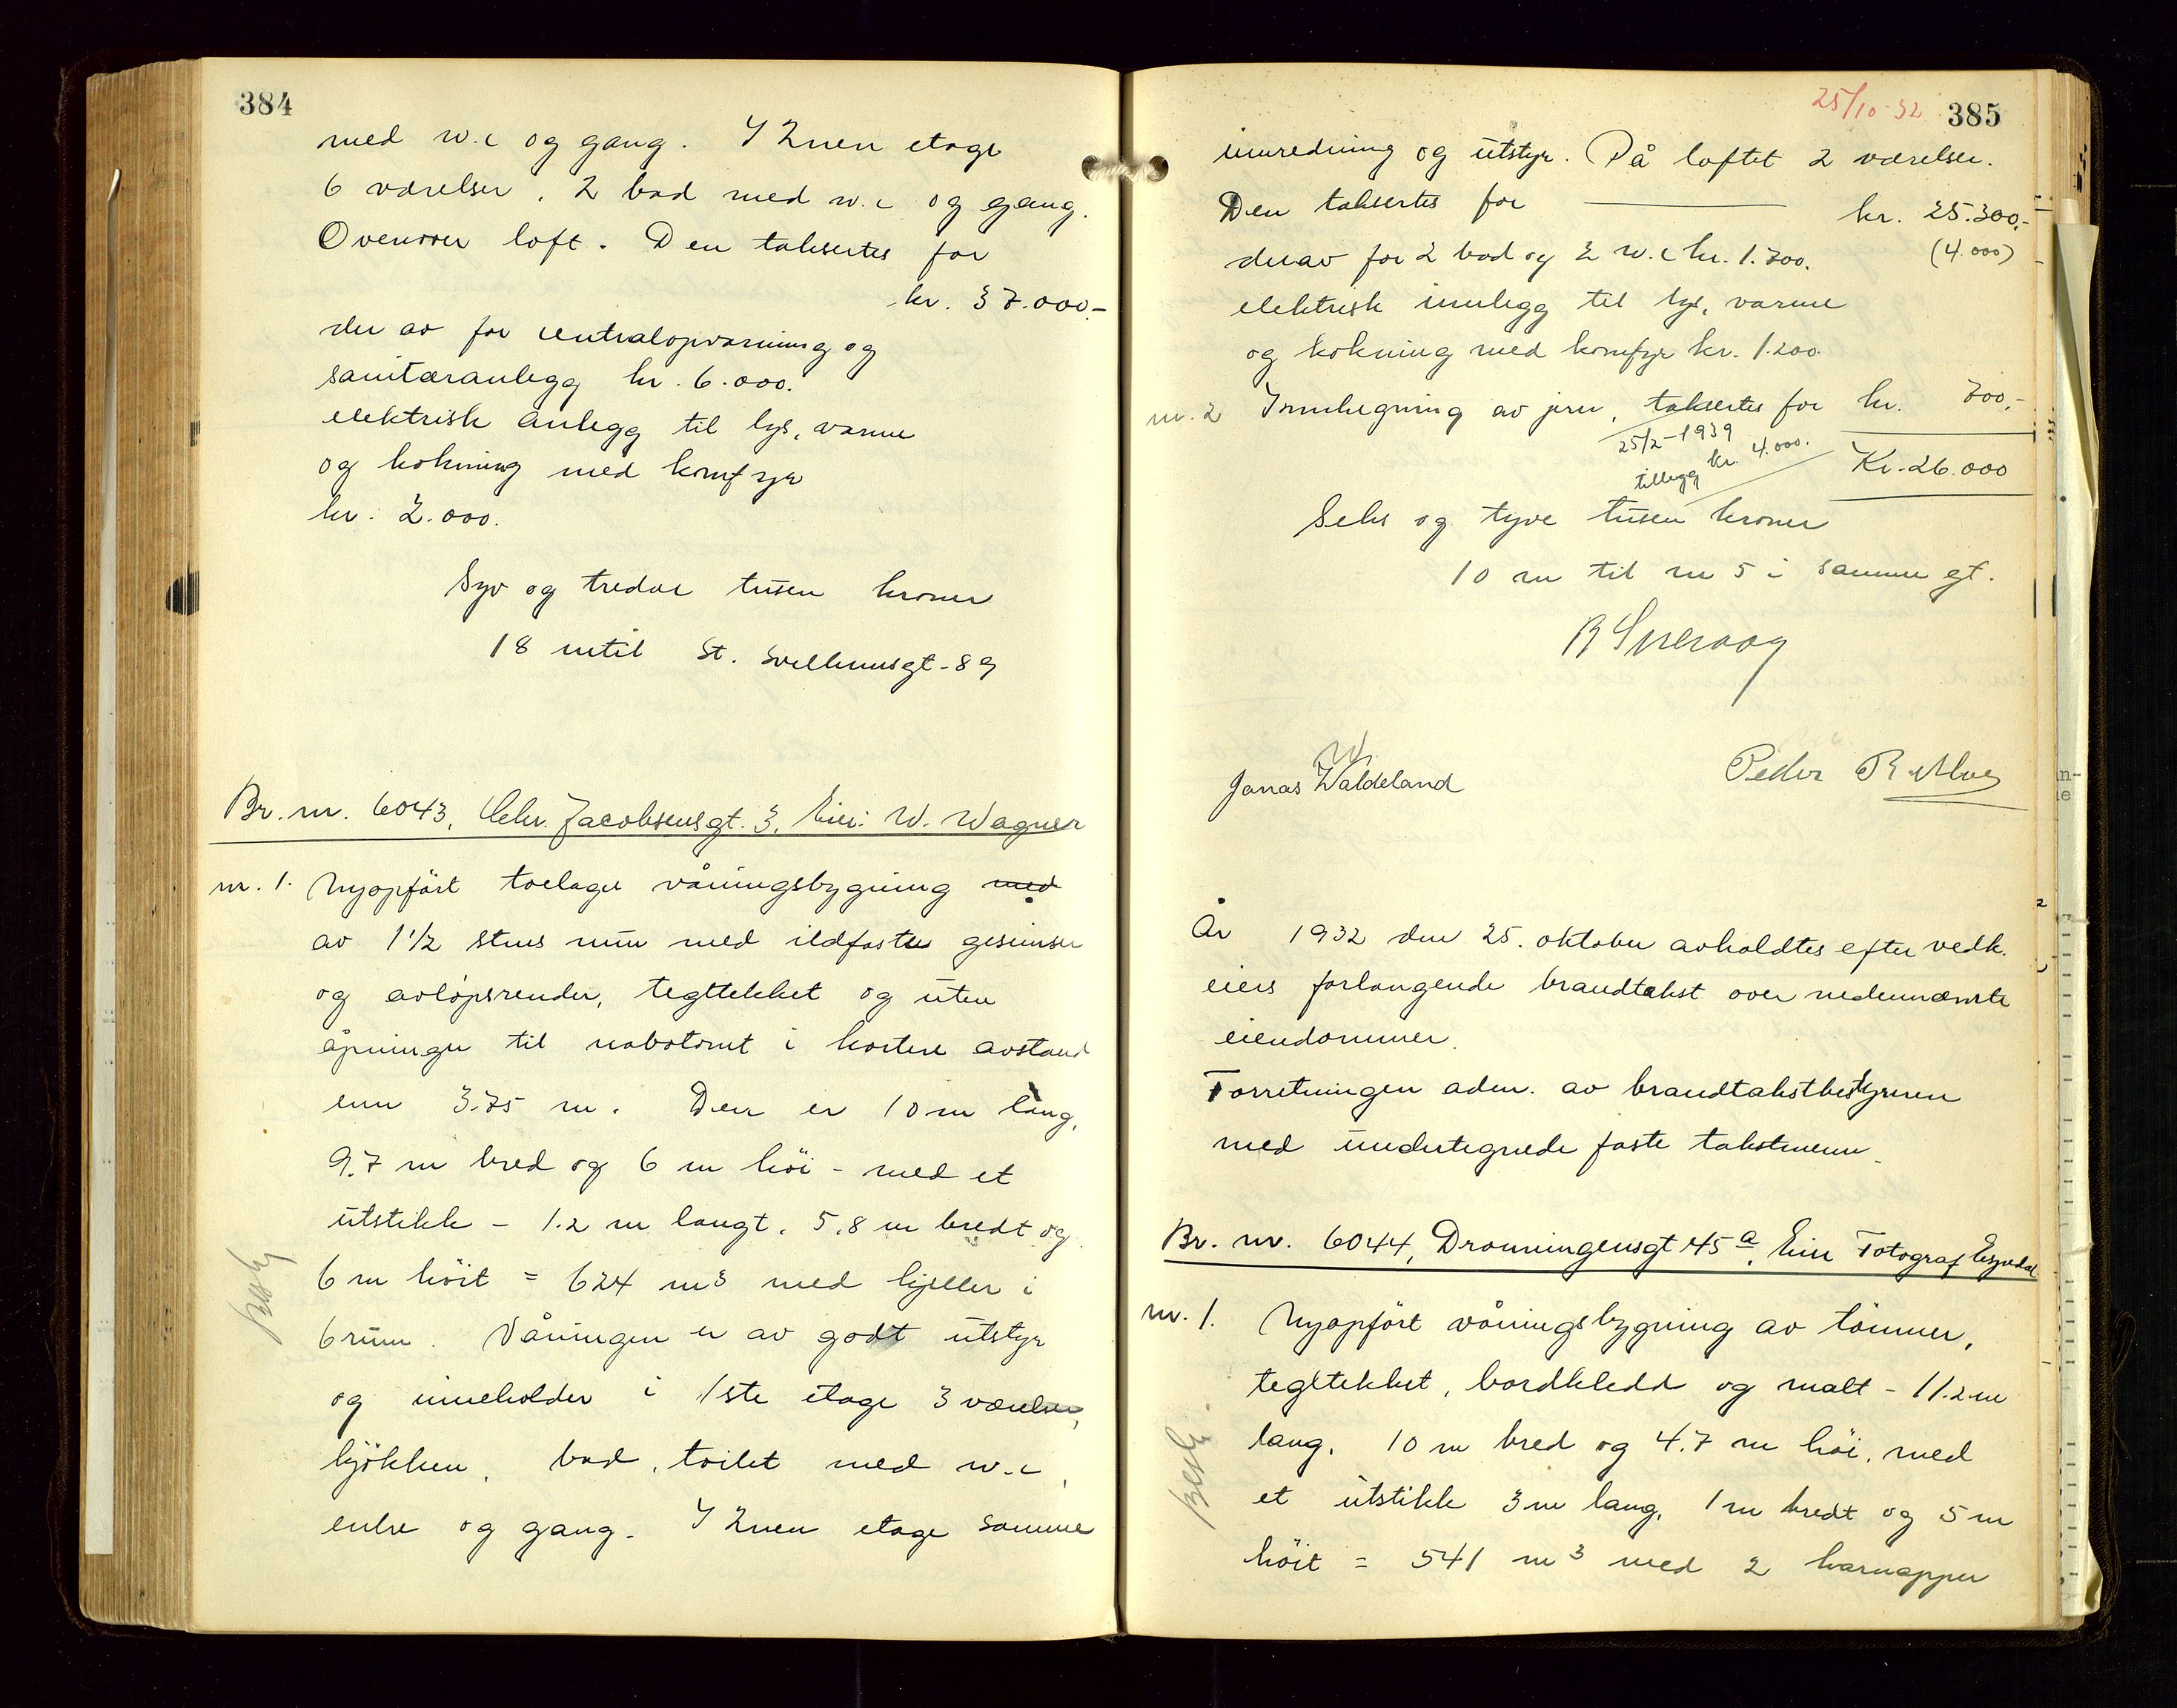 384
med w.c og gang. I 2nen etage
6 værelser, 2 bad med w.c og gang.
Ovenover loft. Den takseres for
kr. 37.000.-
der av for centralopvarming og
sanitæranlegg kr. 6.000.
elektrisk anlegg til lys, varme
og kokning med komfyr
kr. 2.000.
Syv og tredve tusen kroner
18 m til St. Svithunsgt. 89
Br. nr. 6043, Chr. Jacobsensgt. 3, Eier: W. Wagner
nr. 1. Nyopført toetages våningsbygning med
av 1 1/2 stens mur med ildfaste gesimser
og avløpsrender, tegltekket og uten
åpninger til nabotomt i kortere avstand
enn 3.75 m. Den er 10 m lang,
9.7 m bred og 6 m höi - med et
utstikk - 1.2 m langt, 5,8 m bredt og
6 m höit = 624 m3 med kjeller i
6 rum. Våningen er av godt utstyr
og inneholder i 1ste etage 3 værelser,
kjökken, bad, toilet med w.c,
entre og gang. I 2nen etage samme
besk
25/10-32 385
innredning og utstyr. På loftet 2 værelser.
Den takseres for kr. 25.300.-
derav for 2 bad og 2 w.c kr. 1.700. (4.000)
elektrisk innlegg til lys, varme
og kokning med komfyr kr. 1.200.
nr. 2 Innhegning av jern, takseres for kr. 700.-
25/2-1939
tillegg kr. 4.000.
Kr. 26.000
Seks og tyve tusen kroner
10 m til nr 5 i samme gt.
Jonas W Waldeland
År 1932 den 25. oktober avholdtes efter vedk.
eiers forlangende brandtakst over nedennævnte
eiendommer.
Forretningen adm. av brandtakstbestyreren
med undertegnede faste takstmenn.
Br. nr. 6044, Dronningensgt 45 a, Eier Fotograf Espedal
nr. 1. Nyopført våningsbygning av tömmer,
tegltekket, bordkledd og malt - 11.2 m
lang, 10 m bred og 4.7 m höi, med
et utstikk 3 m lang, 1 m bredt og 5 m
höit = 541 m3 med 2 karnapper
besk.